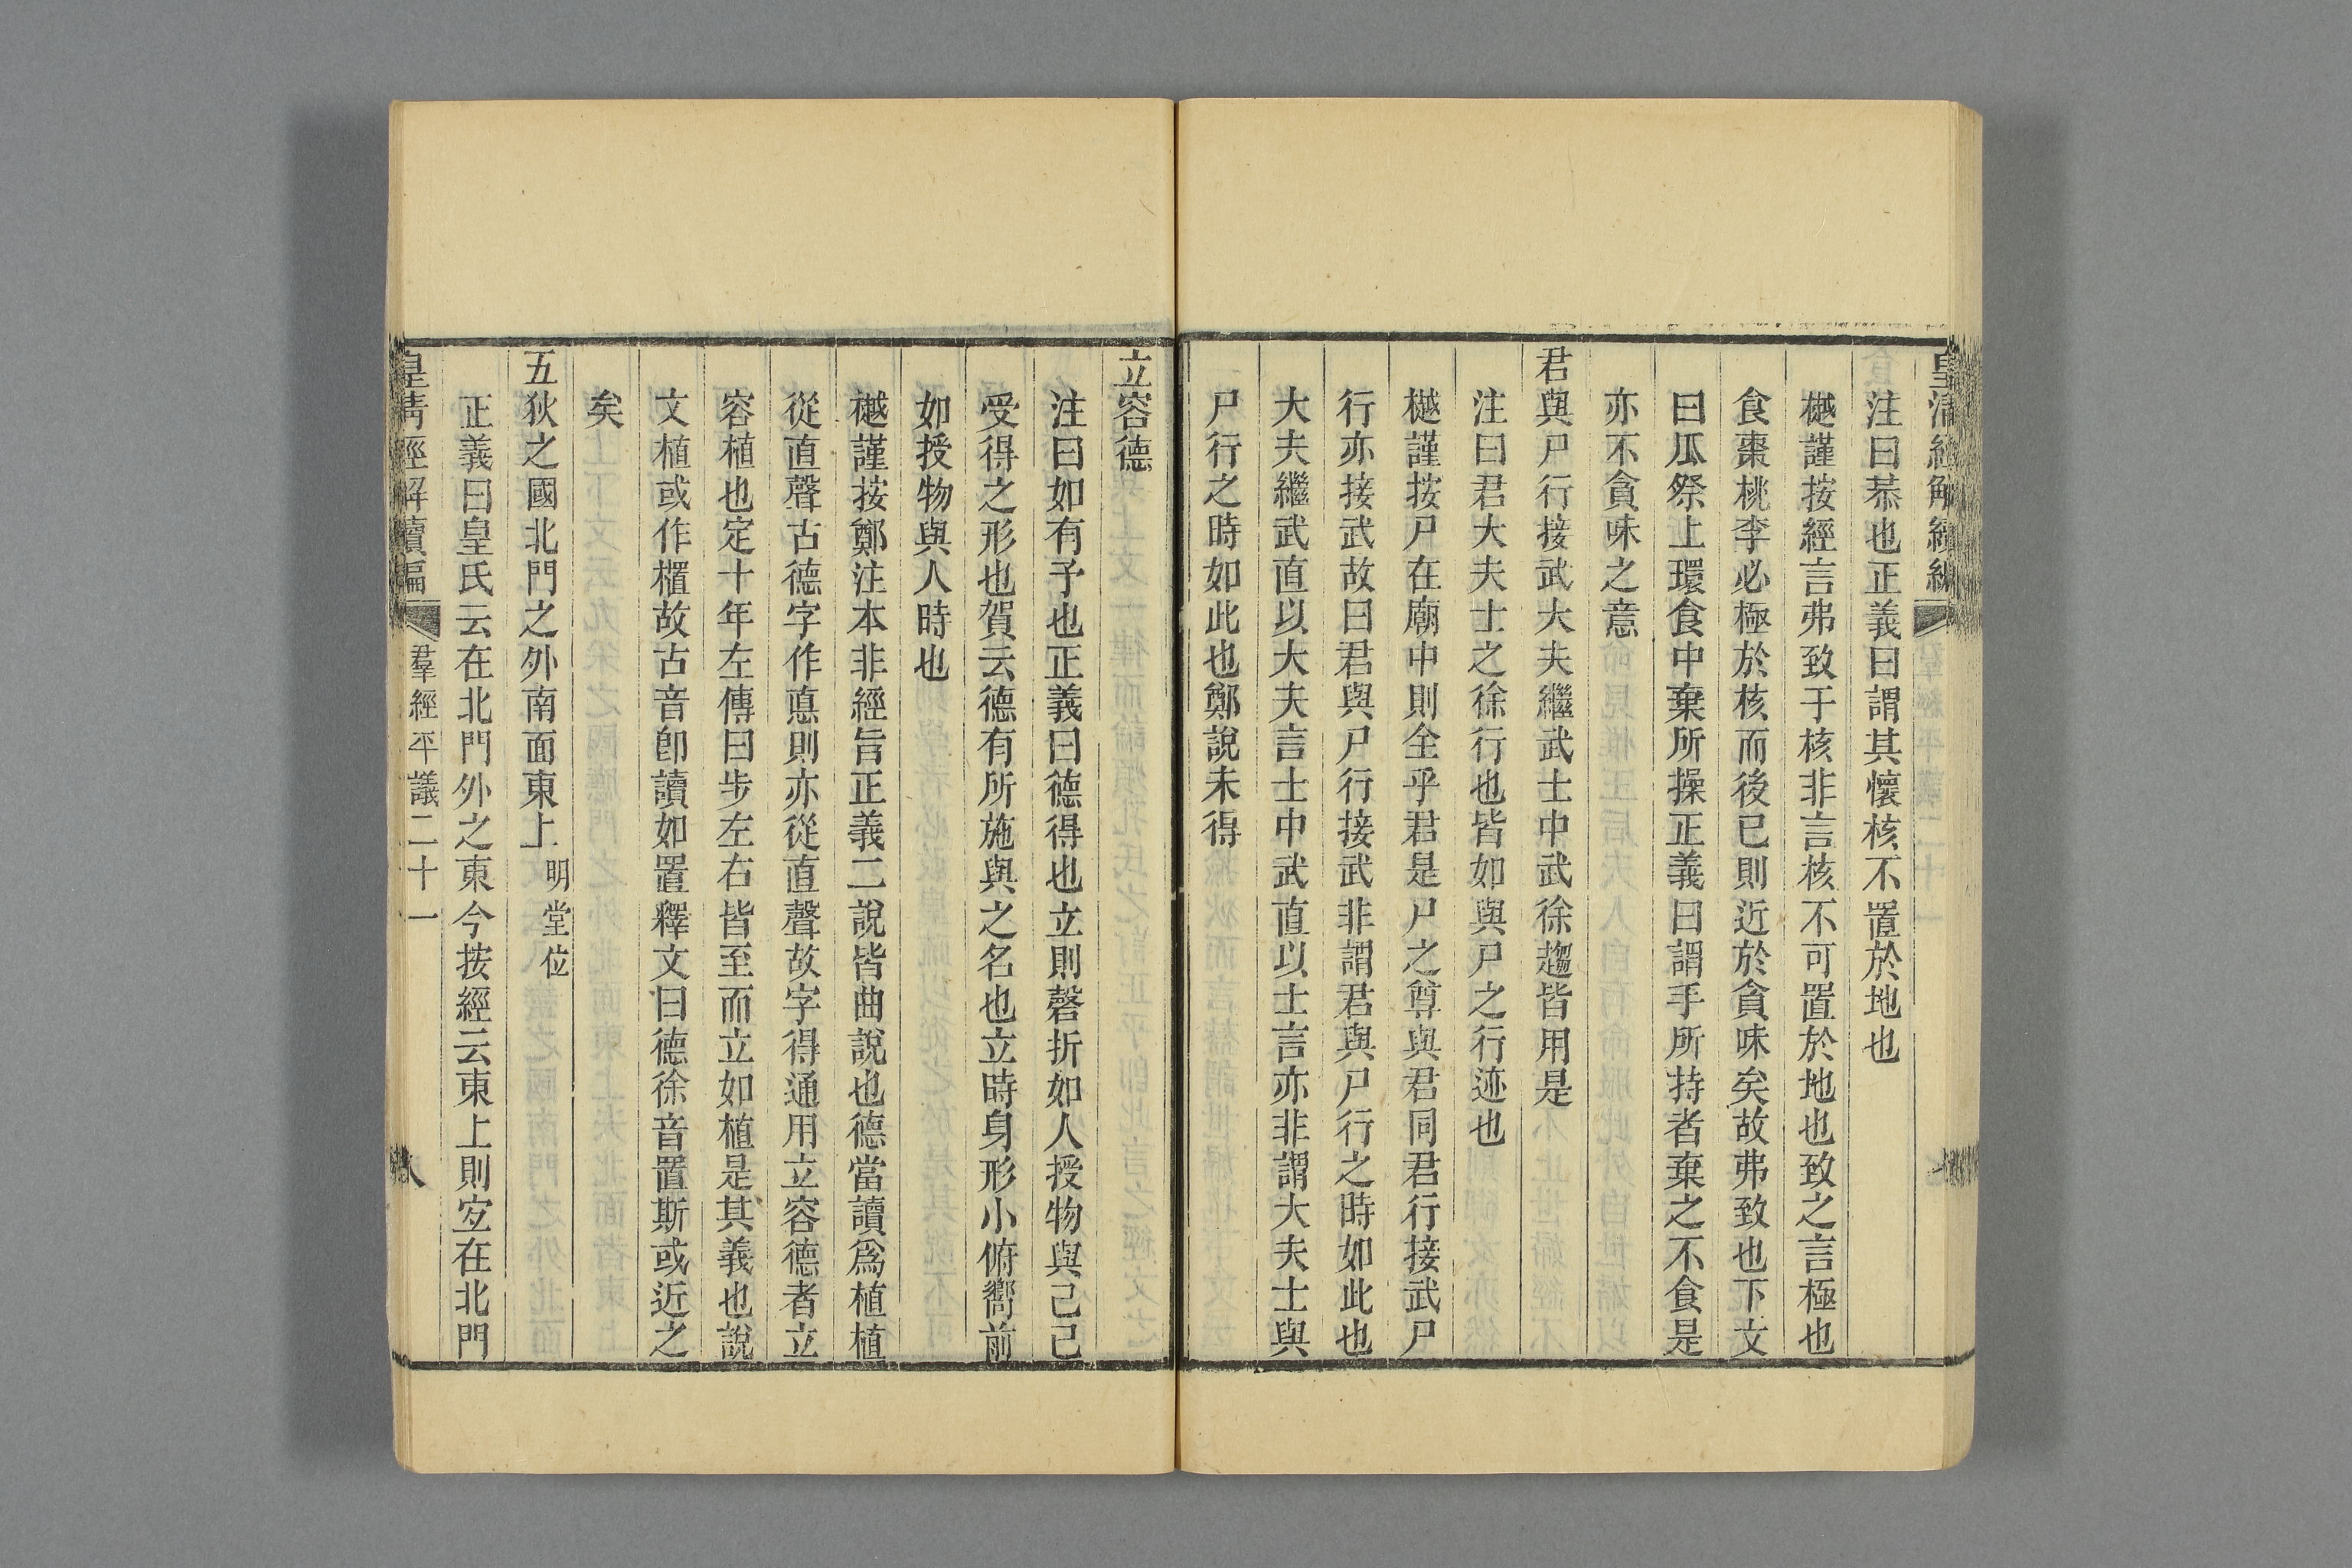 皇清經解續編
注曰恭也正義曰謂其懷核不置於地也
樾謹按經言弗致于核非言核不可置於地也致之言極也
食棗桃李必極於核而後已則近於貪味矣故弗致也下文
曰瓜祭上環食中棄所操正義曰謂手所持者棄之不食是
亦不貪味之意
君與尸行接武大夫繼武士中武徐趨皆用是
注曰君大夫士之徐行也皆如與尸之行迹也
樾謹按尸在廟中則全乎君是尸之尊與君同君行接武尸
行亦接武故曰君與尸行接武非謂君與尸行之時如此也
大夫繼武直以大夫言士中武直以士言亦非謂大夫士與
尸行之時如此也鄭說未得
立容德
注曰如有予也正義曰德得也立則磬折如人授物與己己
受得之形也賀云德有所施與之名也立時身形小俯嚮前
如授物與人時也
樾謹按鄭注本非經旨正義二說皆曲說也德當讀爲植植
從直聲古德字作悳則亦從直聲故字得通用立容德者立
容植也定十年左傳曰步左右皆至而立如植是其義也說
文植或作櫃故古音卽讀如置釋文曰德徐音置斯或近之
矣
五狄之國北門之外南面東上 明堂位
正義曰皇氏云在北門外之東今按經云東上則宐在北門
皇清經解續編 羣經平議二十一 八